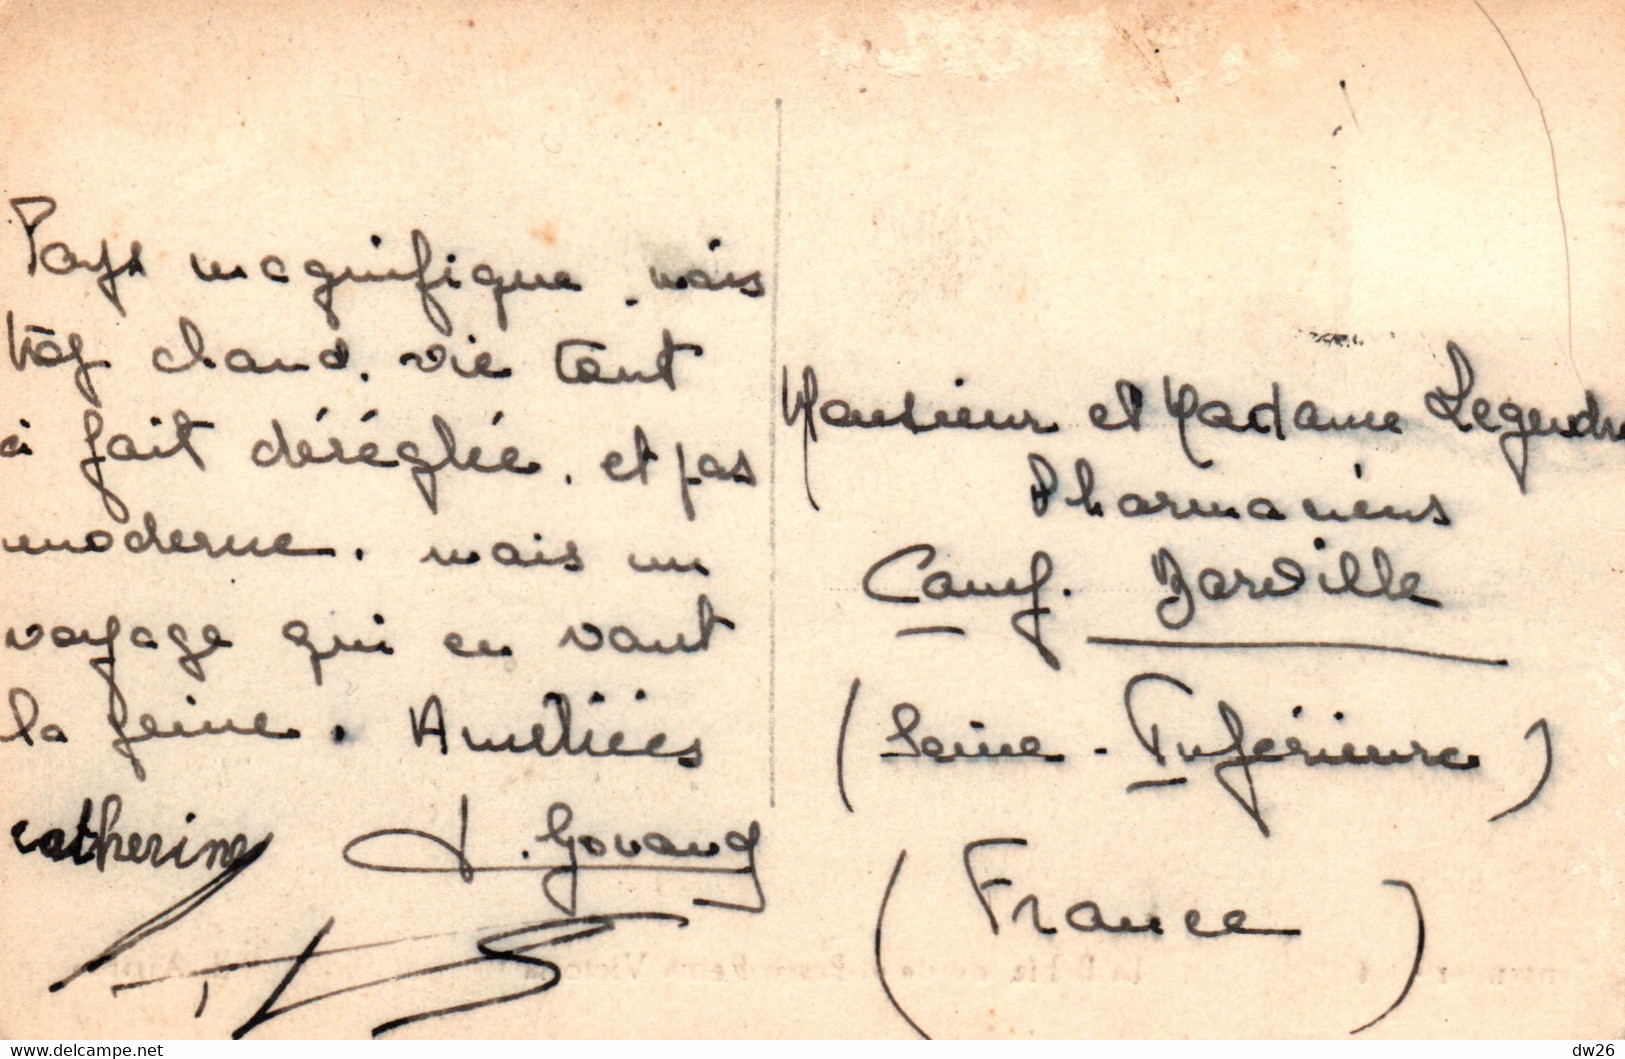 Pays magnifique, mais
trop chaud, vie tout
à fait déréglée, et pas
moderne, mais un
voyage qui en vaut
la peine. Amitiés
Catherine
Monsieur et Madame Legendre
Pharmaciens
Camp. Barville
(Seine-Inférieure)
(France)
www.delcampe.net
dw26